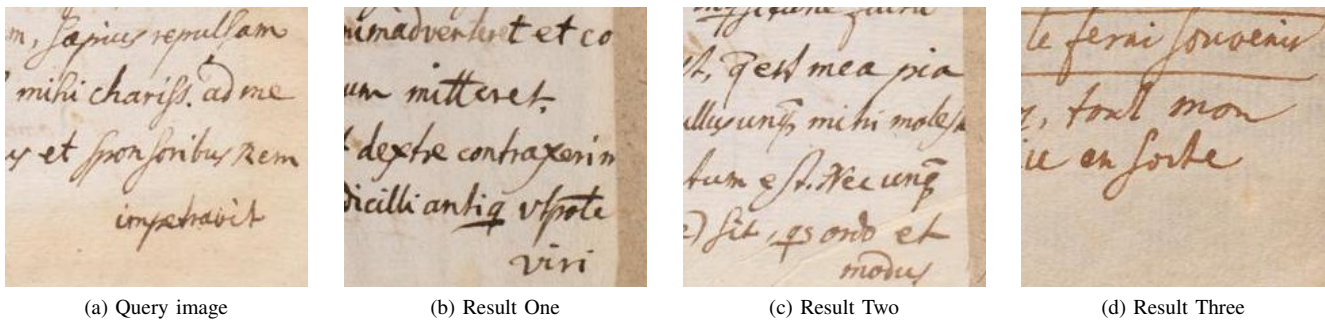 m, sæpius repulsam
mihi chariss. ad me
us et sponsoribus Rem
impetravit
(a) Query image
nimadverteret et co
um mitteret.
dextre contraxerim
dicilli antiq utpote
viri
(b) Result One
st, q est mea pia
ullus unq mihi molest
tum est. Nec unq
sit, qs ordo et
modus
(c) Result Two
le ferai souvenir
tout mon
en sorte
(d) Result Three